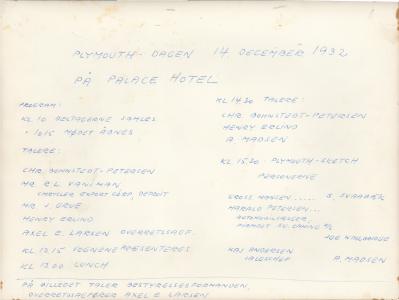 PLYMOUTH-DAGEN 14 DECEMBER 1932
PÅ PALACE HOTEL
PROGRAM:
KL 10 DELTAGERNE SAMLES
- 10,15 MØDET ÅBNES
TALERE:
CHR. BOHNSTEDT-PETERSEN
MR R.L. VANIMAN
CHRYSLER EXPORT CORP, DETROIT
MR. J. GRUE
HENRY ERLIND
AXEL E. LARSEN OVERRETSSAGF.
KL 12,15 VOGNENE PRÆSENTERES
KL 13.00 LUNCH
KL 14.30 TALERE:
CHR. BOHNSTEDT-PETERSEN
HENRY ERLIND
A. MADSEN
KL 15,30 PLYMOUTH-SKETCH
PERSONERNE
GROSS HANSEN ..... S.
HARALD PETERSEN ...
AUTOMOBILSÆLGER,
KAJ ANDERSEN
SALGSCHEF A. MADSEN
PÅ BILLEDET TALER BESTYRELSESFORMANDEN,
OVERRETSSAGFØRER AXEL E. LARSEN